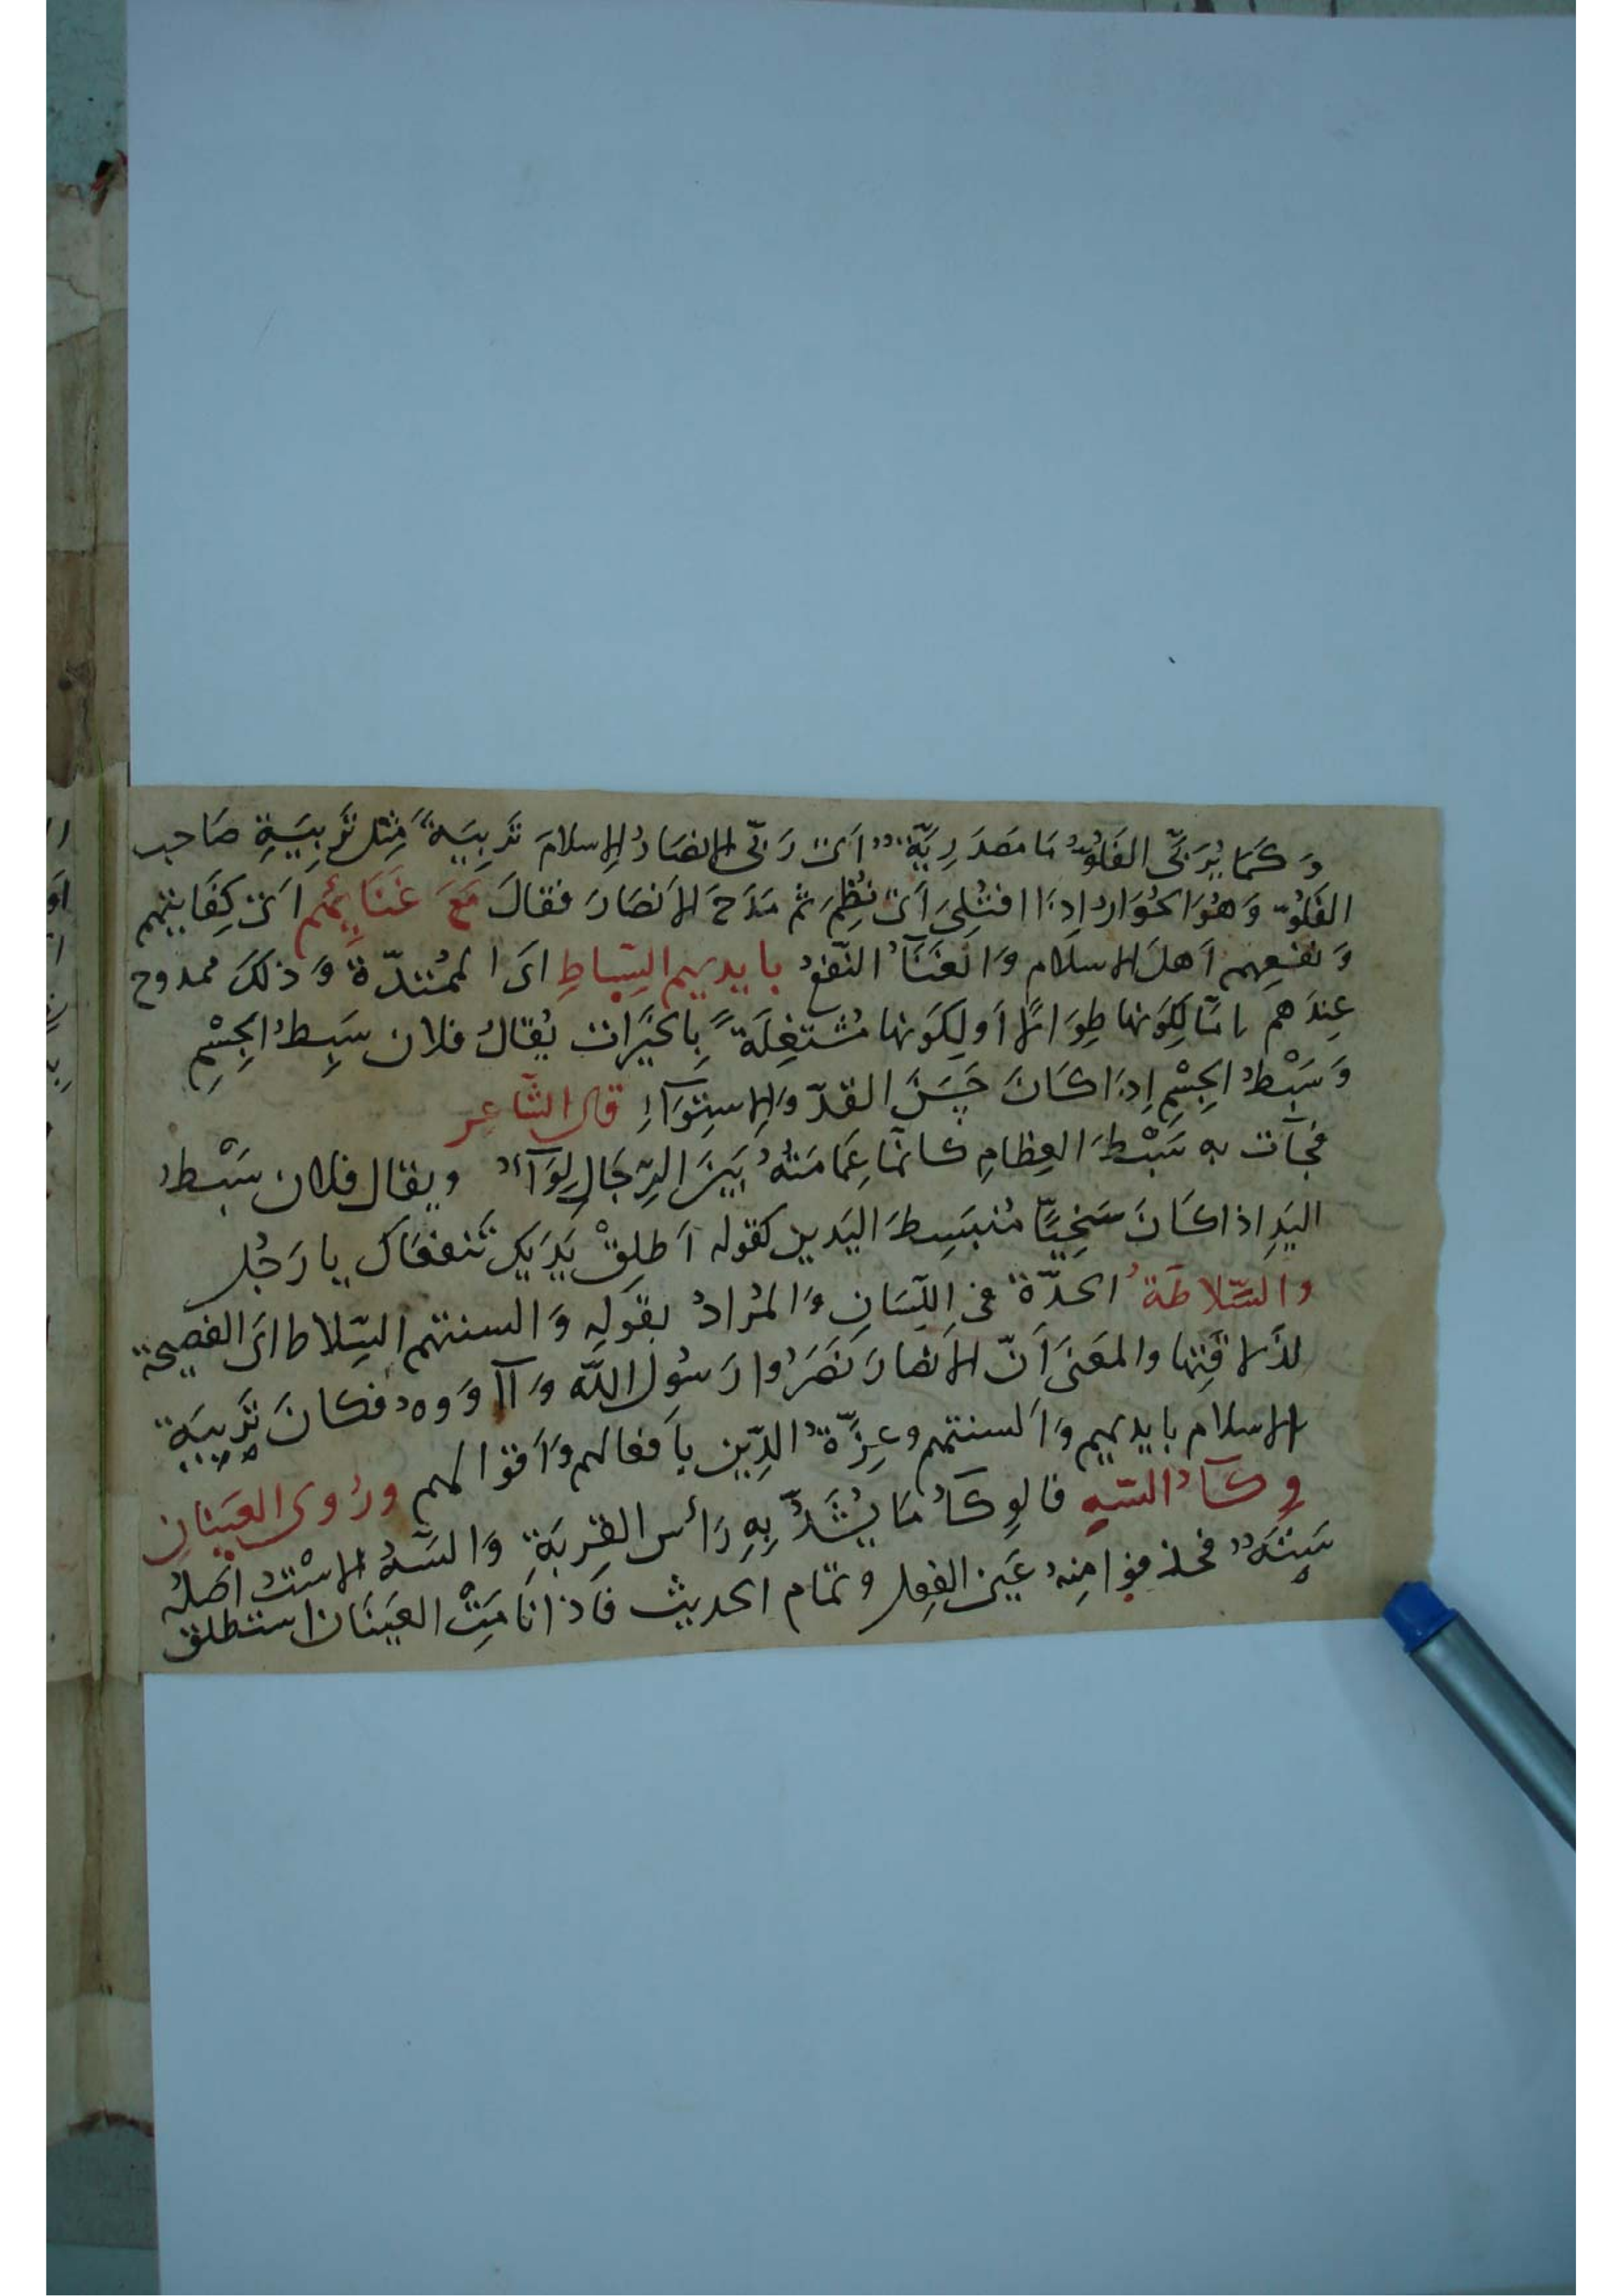 وَكَمَا يُرَبَّى الفَلُوّ مَا مَصدَرِيَّة اَىْ رَبَّى الانصَارُ الاسلامَ تَربِيَةً مِثل تَربِيَةِ صَاحب
الفَلُوّ وَهُوَ الحُوَار اِذَا افتُلِىَ اَىْ فُطِمَ ثم مَدَحَ الاَنصَارَ فقالَ مَعَ غَنَائِهم اَىْ كِفَايتهم
وَنفعِهم اَهلَ الاسلام وَالغَنَآءُ النّفعُ بايديهم السِّباطِ اىَ الممُتدّة وَذلكَ ممدوح
عِندَهم امّا لِكَونها طِوَالًا اَو لِكَونها مُشتغِلَةً بِالخَيرَات يُقالُ فلان سَبِطُ الجِسْمِ
وَسَبْطُ الجِسْمِ اِذَا كَانَ حَسَنَ القدّ وَالاستِوَآءِ قال الشّاعِر
فجَآت به سَبْطَ العِظامِ كانّما عِمَامَتُهُ بَينَ الرّجَالِ لِوَآءُ ويقال فلان سَبْطُ
اليَدِ اذا كَانَ سَخِيًّا مُنبَسِطَ اليَدين كقوله اَطلِقْ يَدَيكَ تَنفعَاكَ يا رَجُل
والسّلاطَةُ الحدّة فى اللّسَانِ وَالمُرادُ بقولِهِ وَالسنتهم السّلاط اىَ الفصيحة
لذَلاقتِها والمعَنىَ اَنّ الانصَارَ نَصَرُوا رَسُولَ اللّه وَآوَوه فكانَ تَربيَة
الاسلام بايديهم وَالسنتهم وعِزّةُ الدِّين بِاَفعالهم وَاَقوالهم ورُوى العَينانِ
وِكَآءُ السَّهِ فالوِكَآءُ مَا يُشَدُّ بِهِ رَأس القِربَةِ وَالسَّهُ الاسْتُ اَصْلُهُ
سَتَهٌ فحذفوا مِنهُ عَينَ الفِعل وتمام الحديث فاَذا نَامَتْ العَينَان استطلق